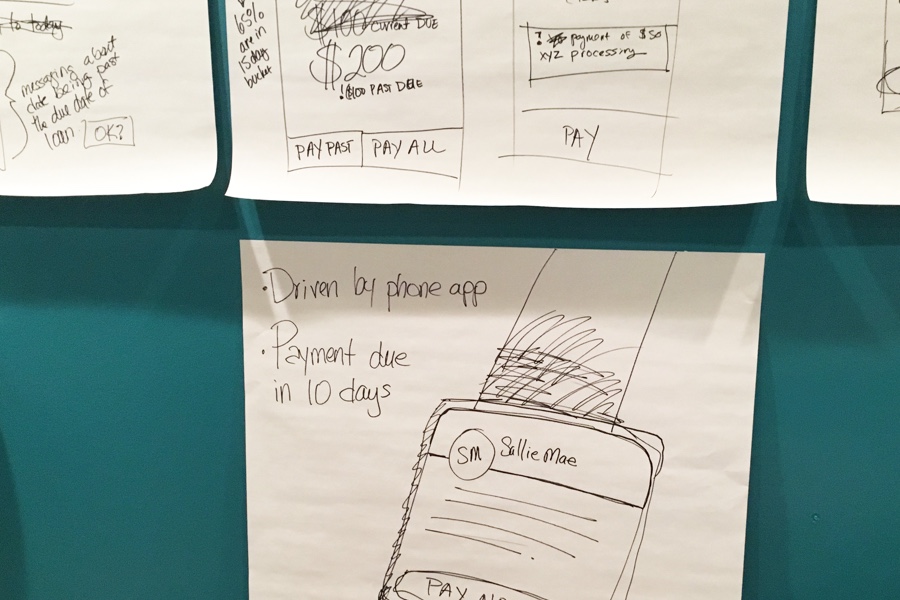 to today
messaging about
date being past
the due date of
loan OK?
65%
are in
15 day
bucket
$100 current DUE
$200
! $100 PAST DUE
PAY PAST PAY ALL
payment of $50
XYZ processing
PAY
· Driven by phone app
· Payment due
in 10 days
SM Sallie Mae
PAY